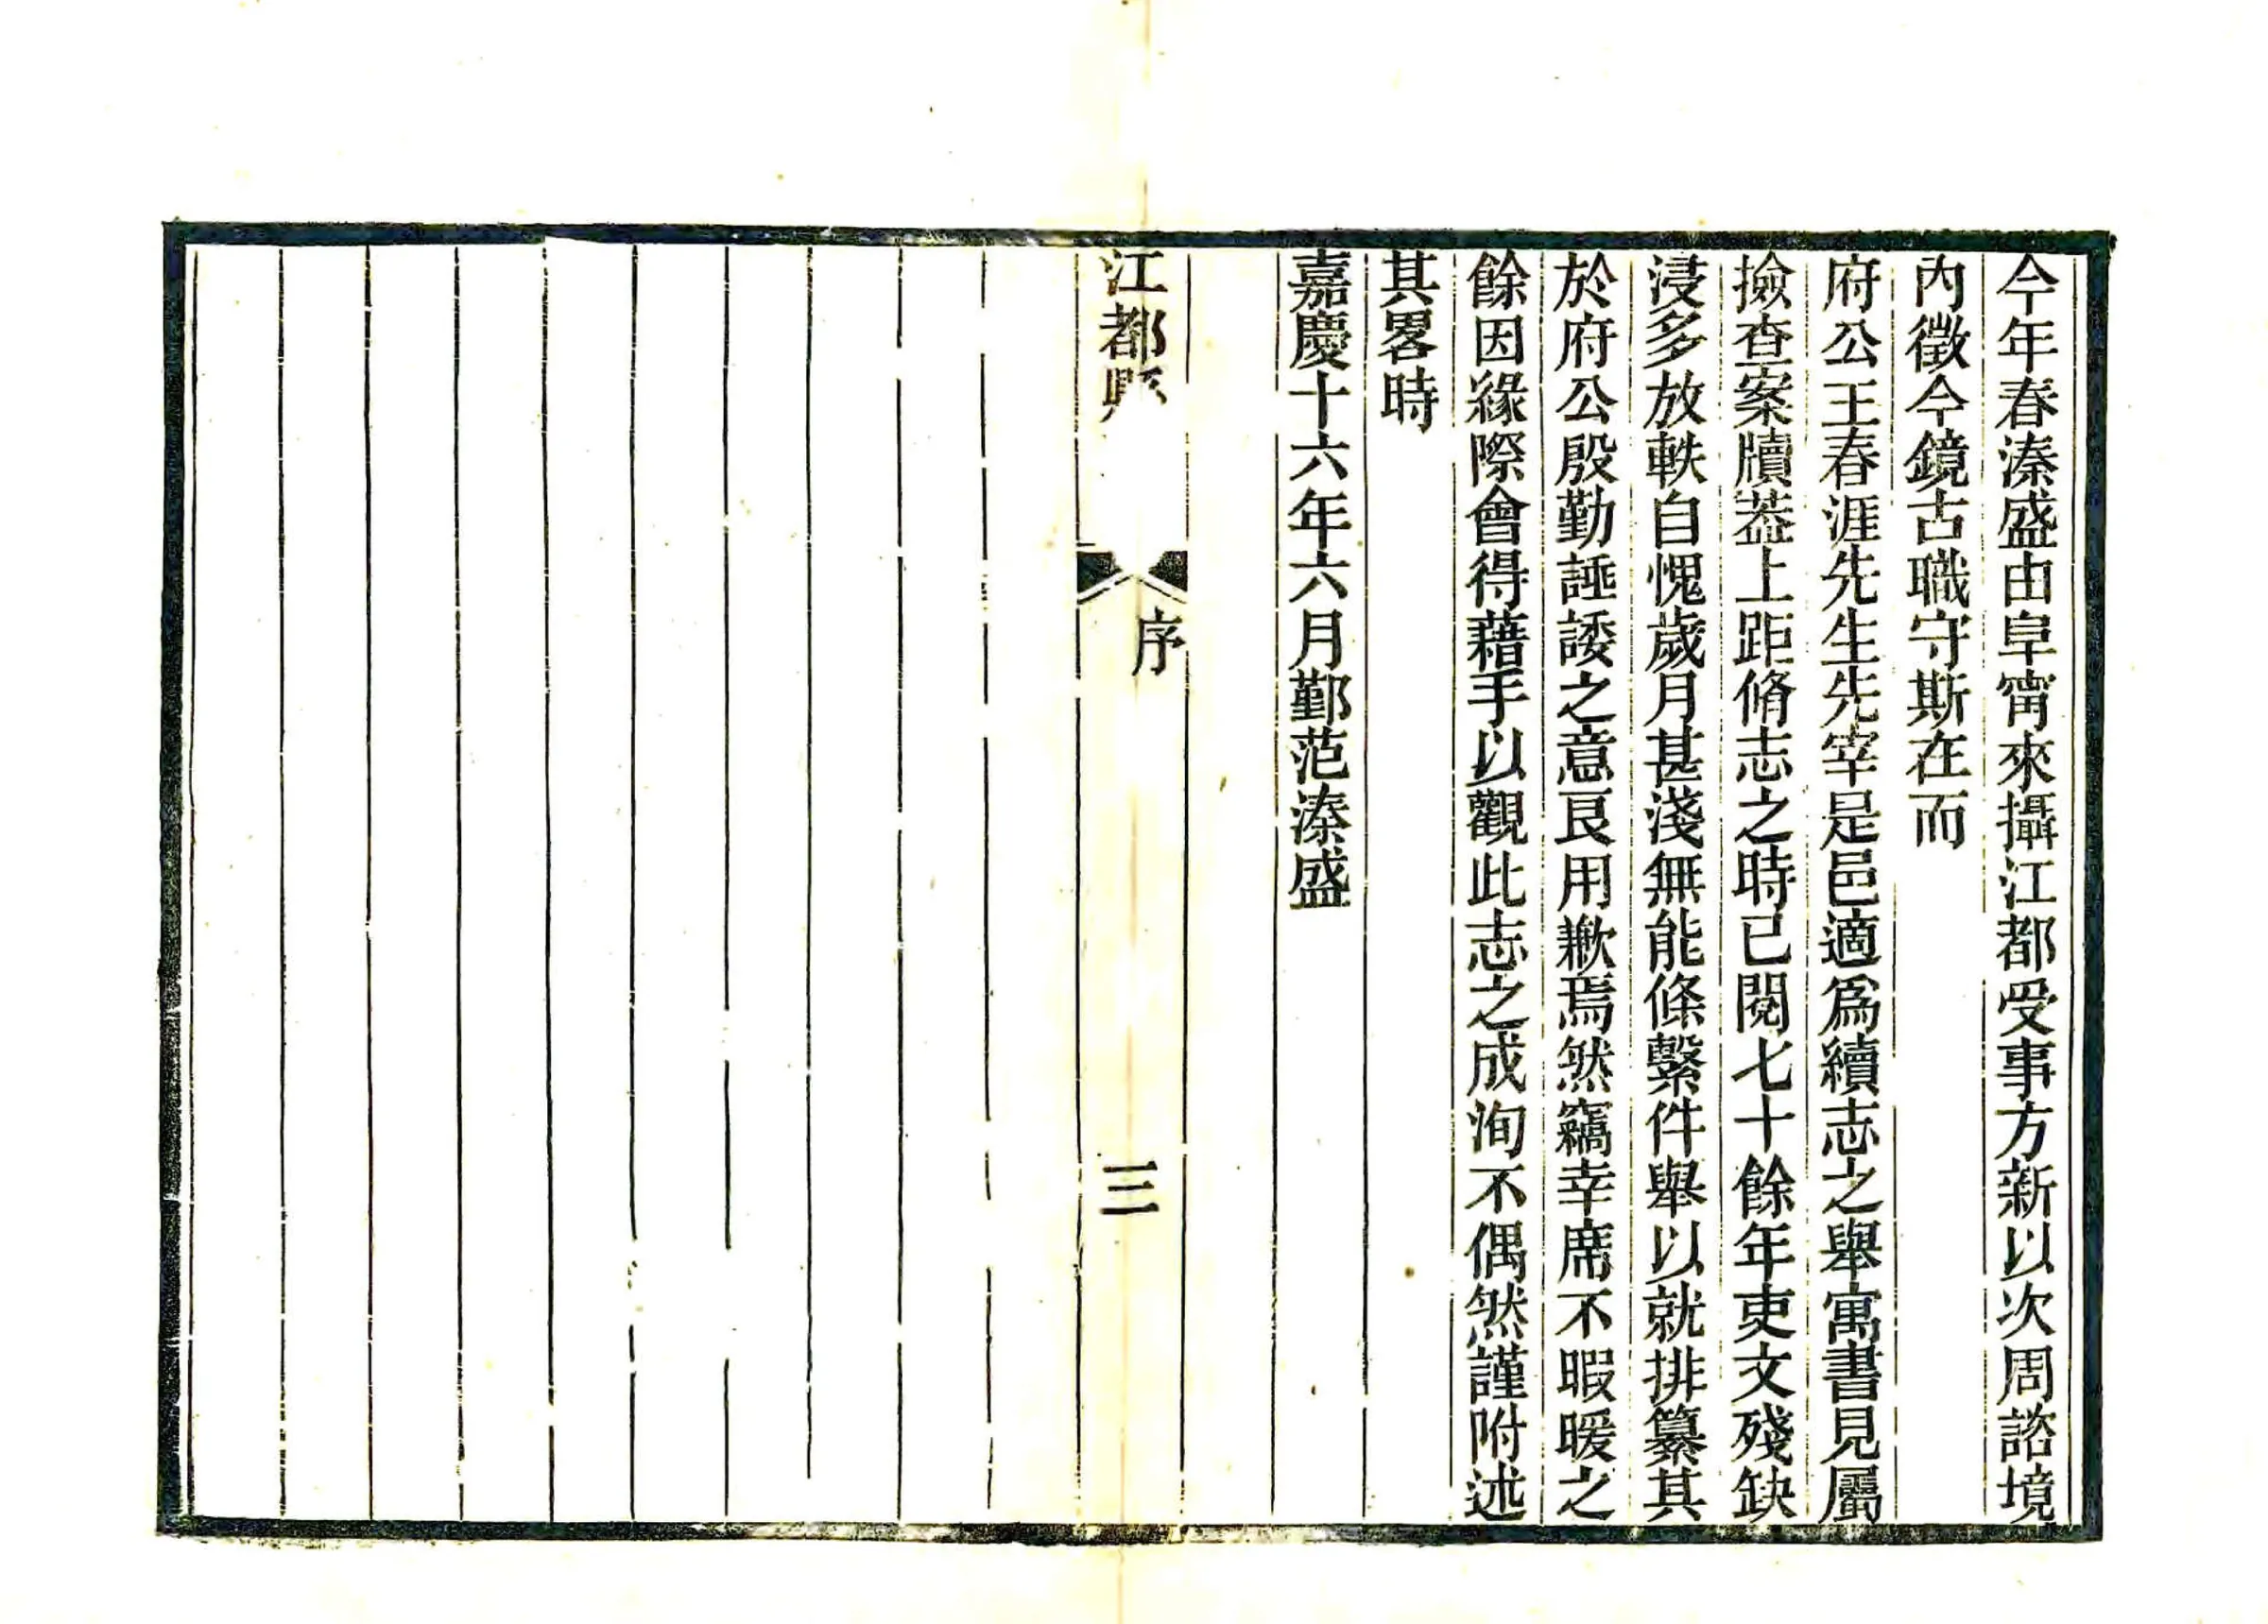 今年春溱盛由阜甯來攝江都受事方新以次周諮境
內徵今鏡古職守斯在而
府公王春涯先生先宰是邑適爲續志之舉寓書見屬
撿查案牘葢上距脩志之時已閱七十餘年吏文殘缺
浸多放軼自愧歲月甚淺無能條繫件舉以就排纂其
於府公殷勤諈諉之意良用歉焉然竊幸席不暇暖之
餘因緣際會得藉手以觀此志之成洵不偶然謹附述
其畧時
嘉慶十六年六月鄞范溱盛
江都縣
序
三